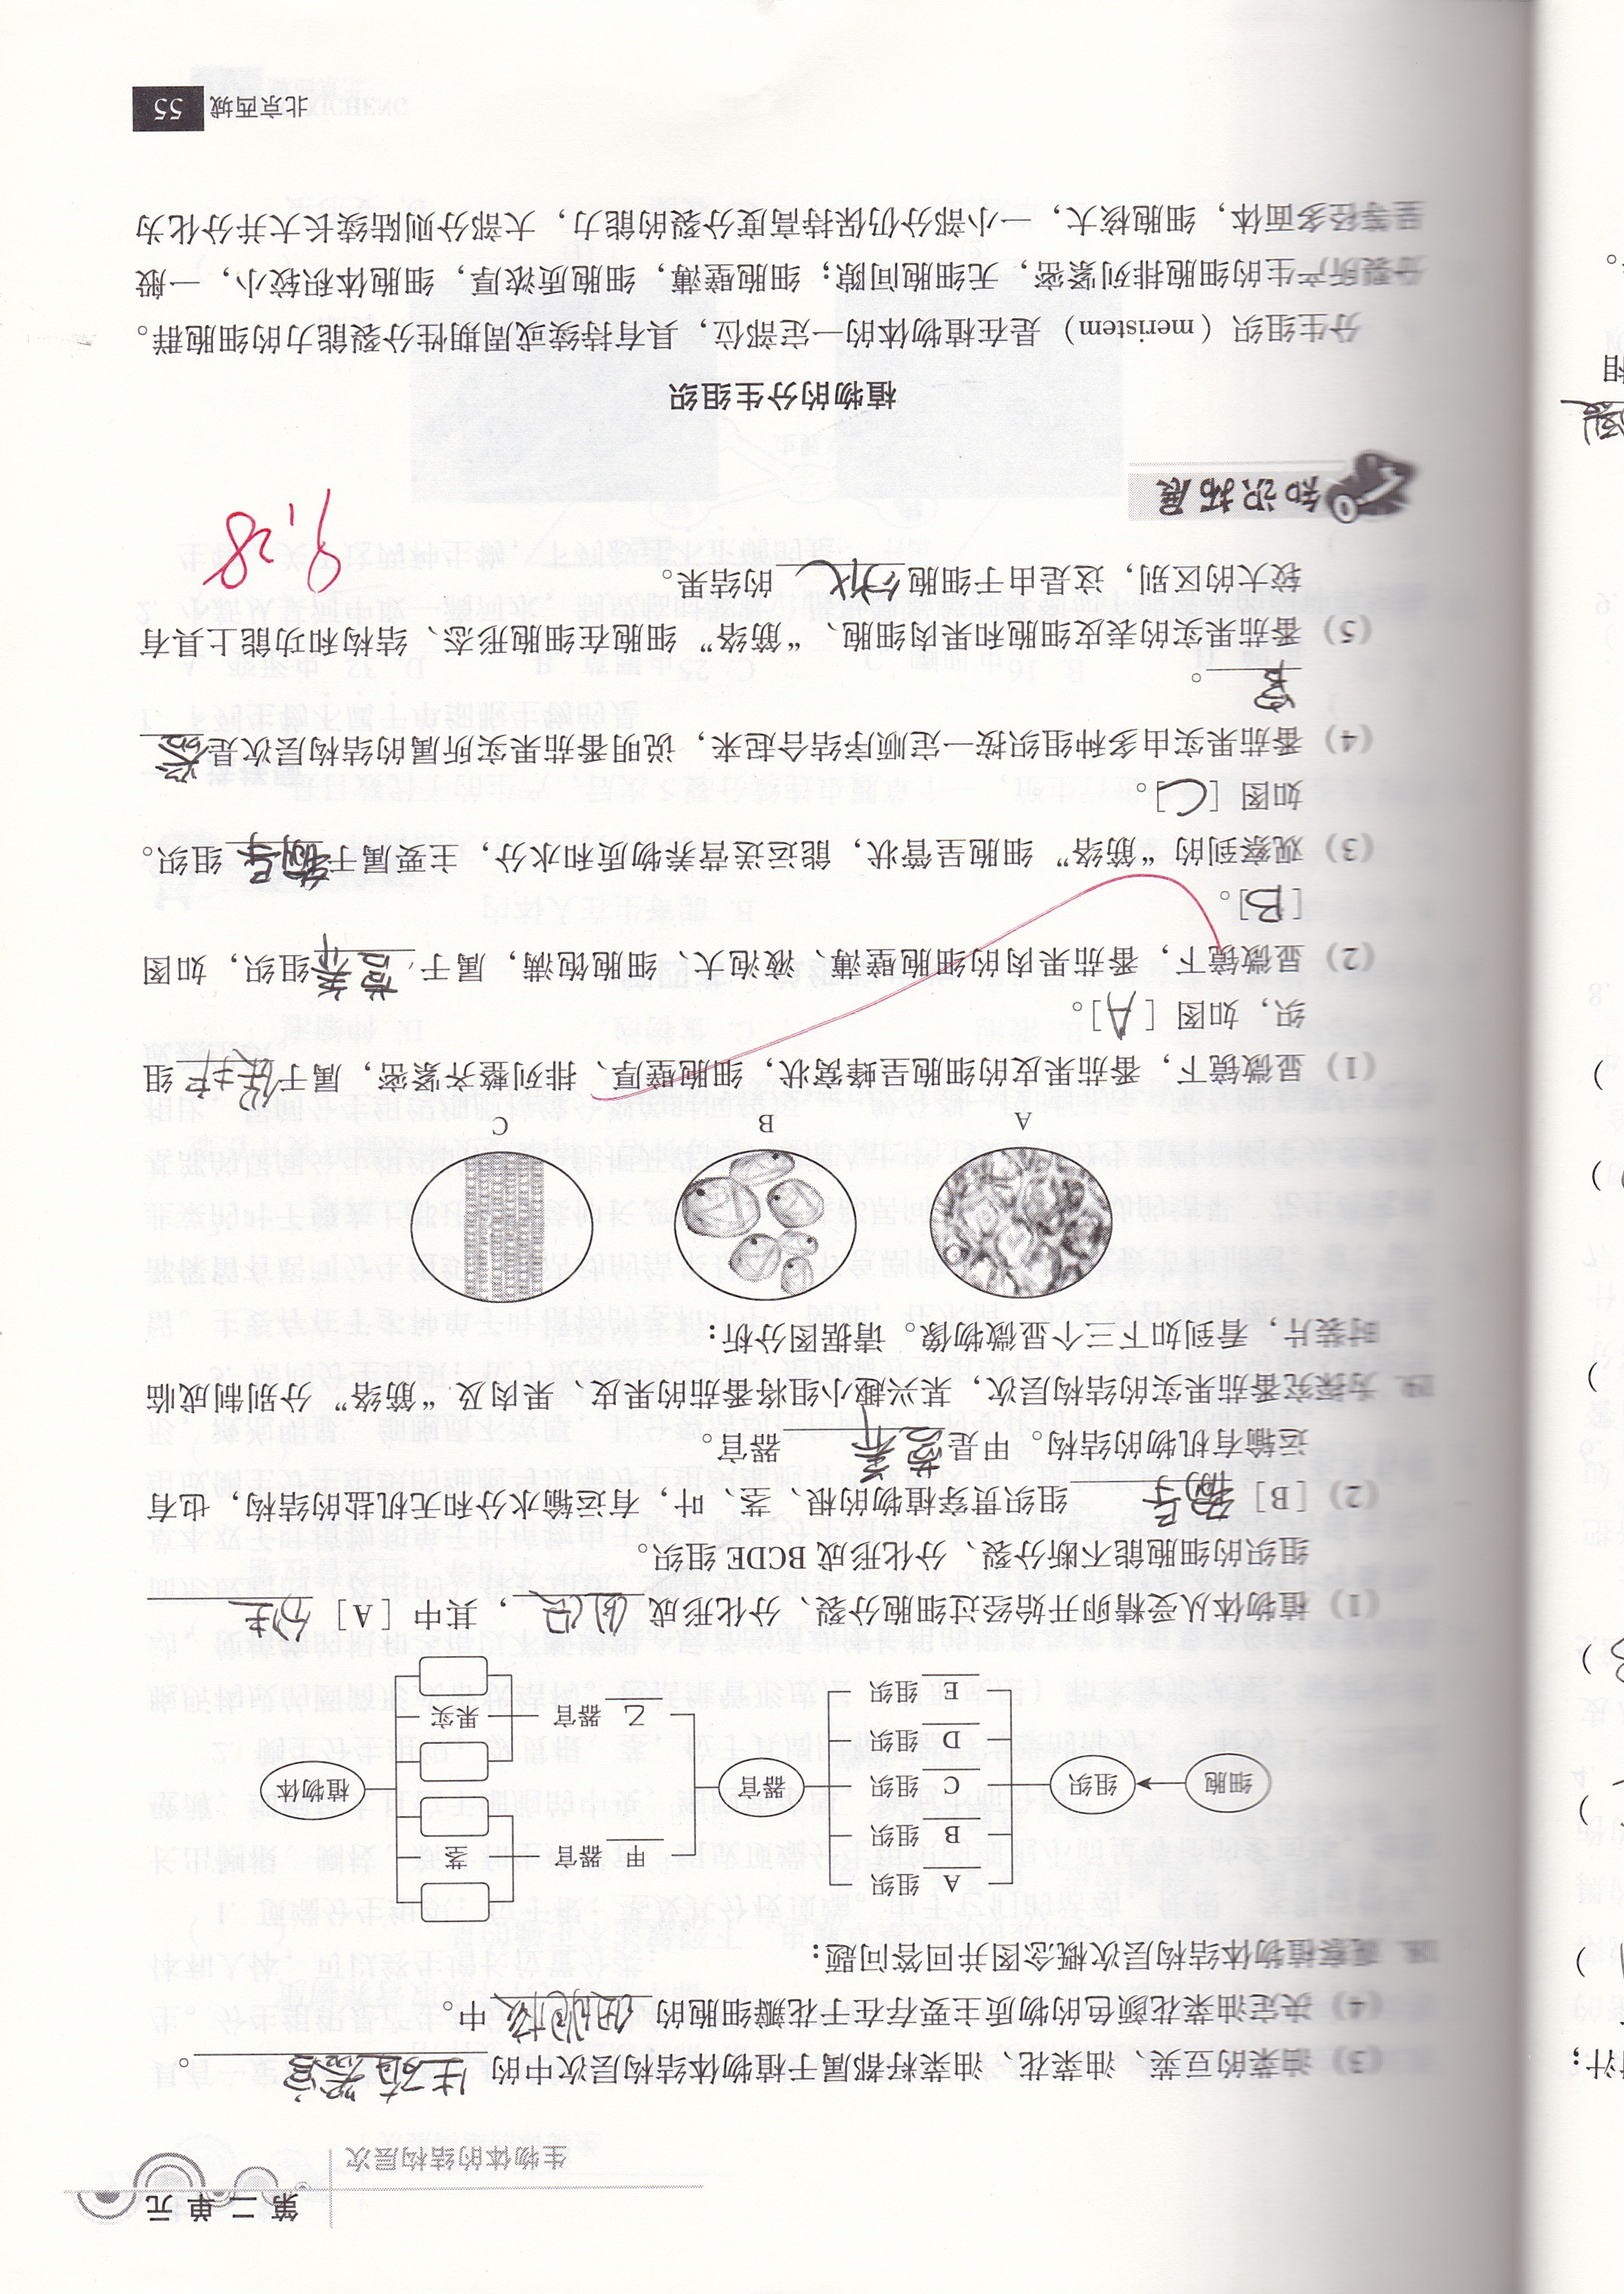 第二单元
生物体的结构层次
(3) 油菜的豆荚、油菜花、油菜籽都属于植物体结构层次中的 生殖器官 。
(4) 决定油菜花颜色的物质主要存在于花瓣细胞的 细胞核 中。
18. 观察植物体结构层次概念图并回答问题:
A 组织
B 组织
C 组织
D 组织
E 组织
细胞
组织
器官
甲 器官
乙 器官
茎
果实
植物体
(1) 植物体从受精卵开始经过细胞分裂、分化形成 组织 ,其中 [A] 分生
组织的细胞能不断分裂、分化形成 BCDE 组织。
(2) [B] 输导 组织贯穿植物的根、茎、叶,有运输水分和无机盐的结构,也有
运输有机物的结构。甲是 营养 器官。
19. 为探究番茄果实的结构层次,某兴趣小组将番茄的果皮、果肉及“筋络”分别制成临
时装片,看到如下三个显微物像。请据图分析:
A B C
(1) 显微镜下,番茄果皮的细胞呈蜂窝状,细胞壁厚、排列整齐紧密,属于 保护 组
织,如图 [A]。
(2) 显微镜下,番茄果肉的细胞壁薄、液泡大、细胞饱满,属于 营养 组织,如图
[B]。
(3) 观察到的“筋络”细胞呈管状,能运送营养物质和水分,主要属于 输导 组织。
如图 [C]。
(4) 番茄果实由多种组织按一定顺序结合起来,说明番茄果实所属的结构层次是 器
官 。
(5) 番茄果实的表皮细胞和果肉细胞、“筋络”细胞在细胞形态、结构和功能上具有
较大的区别,这是由于细胞 分化 的结果。
9.28
知识拓展
植物的分生组织
分生组织(meristem)是在植物体的一定部位,具有持续或周期性分裂能力的细胞群。
分裂所产生的细胞排列紧密,无细胞间隙;细胞壁薄,细胞质浓厚,细胞体积较小,一般
呈等径多面体,细胞核大,一小部分仍保持高度分裂的能力,大部分则陆续长大并分化为
北京西城 55